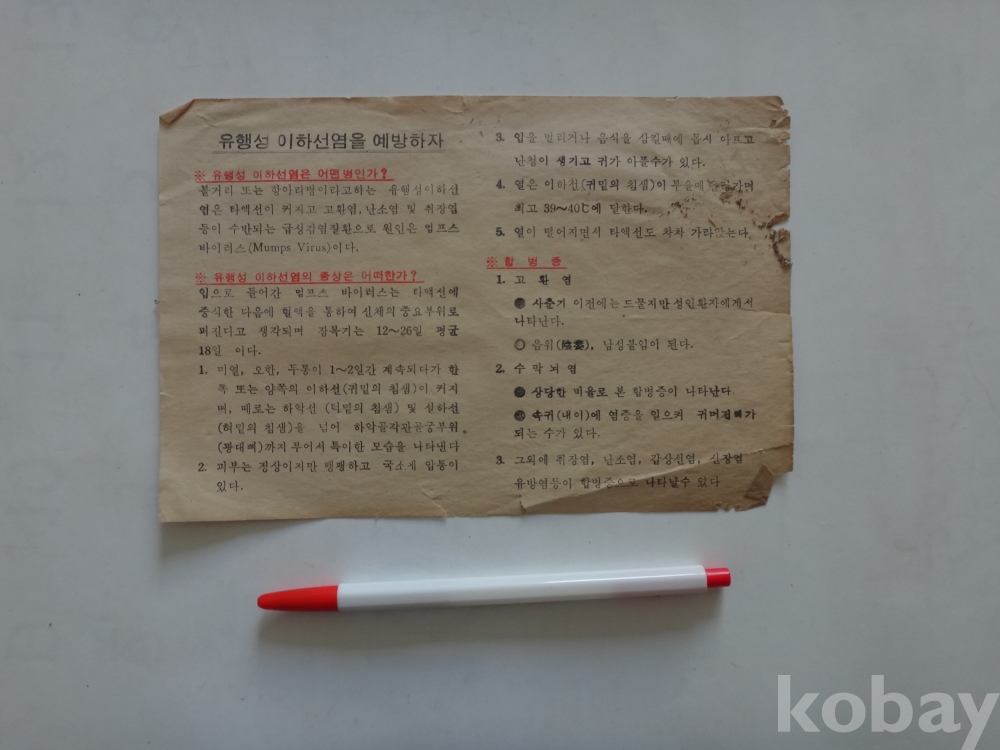 유행성 이하선염을 예방하자
※ 유행성 이하선염은 어떤병인가?
볼거리 또는 항아리병이라고하는 유행성이하선
염은 타액선이 커지고 고환염, 난소염 및 취장염
등이 수반되는 급성감염질환으로 원인은 멈프스
바이러스(Mumps Virus)이다.
※ 유행성 이하선염의 증상은 어떠한가?
입으로 들어간 멈프스 바이러스는 타액선에
증식한 다음에 혈액을 통하여 신체의 중요부위로
퍼진다고 생각되며 잠복기는 12~26일 평균
18일 이다.
1. 미열, 오한, 두통이 1~2일간 계속되다가 한
쪽 또는 양쪽의 이하선(귀밑의 침샘)이 커지
며, 때로는 하악선 (턱밑의 침샘) 및 설하선
(혀밑의 침샘)을 넘어 하악골작관골궁부위
(광대뼈)까지 부어서 특이한 모습을 나타낸다.
2. 피부는 정상이지만 팽팽하고 국소에 압통이
있다.
3. 입을 벌리거나 음식을 삼킬때에 몹시 아프고
난청이 생기고 귀가 아플수가 있다.
4. 열은 이하선(귀밑의 침샘)이 부을때
최고 39~40℃에 달한다.
5. 열이 떨어지면서 타액선도 차차 가라앉는다.
※ 합병증
1. 고환염
● 사춘기 이전에는 드물지만 성인환자에게서
나타난다.
○ 음위(陰萎), 남성불임이 된다.
2. 수막뇌염
● 상당한 비율로 본 합병증이 나타난다.
● 속귀(내이)에 염증을 일으켜 귀머거리가
되는 수가 있다.
3. 그외에 취장염, 난소염, 갑상선염, 신장염
유방염등이 합병증으로 나타날수 있다
kobay